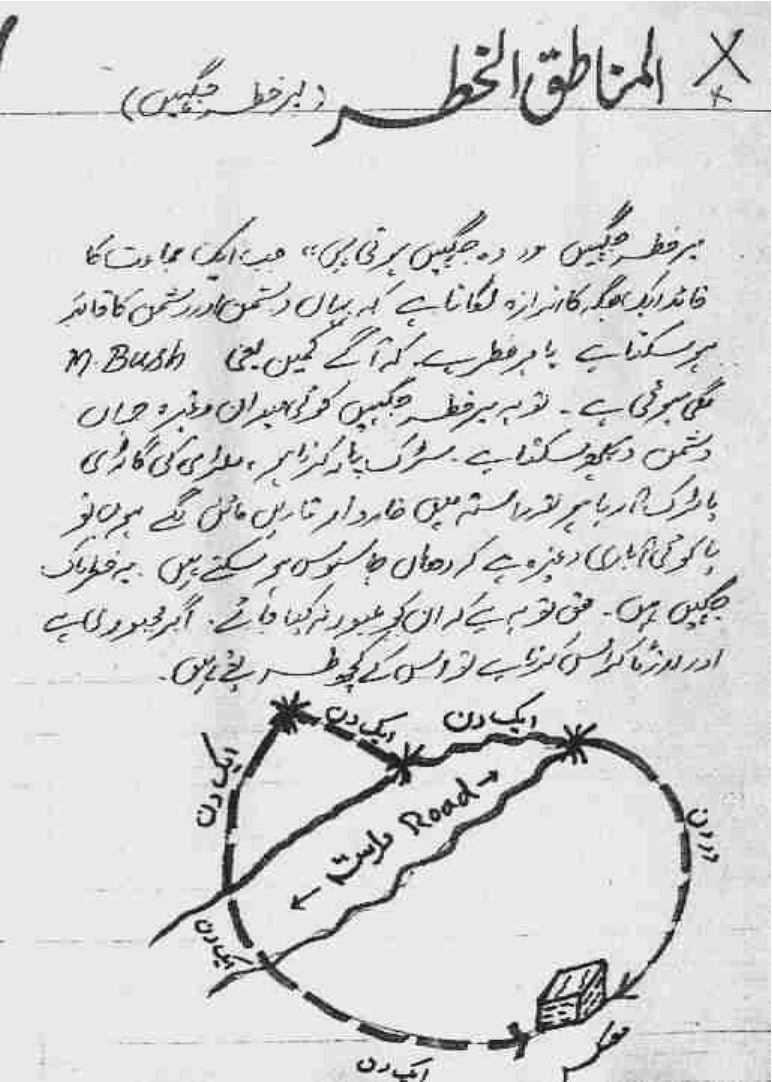 المناطق الخطر (پر خطر جگہیں)
پرخطر جگہیں وہ جگہیں ہوتی ہیں جب ایک کا
قائد ایک جگہ کا اندازہ لگاتا ہے کہ یہاں دشمن اور دشمن کا
ہو سکتا ہے یا پر خطر ہے کہ آگے کمین یعنی M. Bush
لگی ہوئی ہے۔ تو یہ پر خطر جگہیں کوئی میدان وغیرہ جہاں
دشمن دیکھ سکتا ہے۔ سڑک پار کرنا ہو، کی گاڑی
یا ٹرک آ رہا ہو تو راستہ میں خاردار تاریں لگے ہوں تو
یا کوئی آبادی وغیرہ ہے کہ وہاں جاسوس ہو سکتے ہیں۔ یہ خطرناک
جگہیں ہیں۔ تو یہ ہے کہ ان کو عبور نہ کیا جائے۔ اگر مجبوری ہے
اور کراس کرنا ہے تو اس کے کچھ طریقے ہیں۔
ایک دن
ایک دن
ایک دن
راستہ Road
دو دن
ایک دن
ایک دن